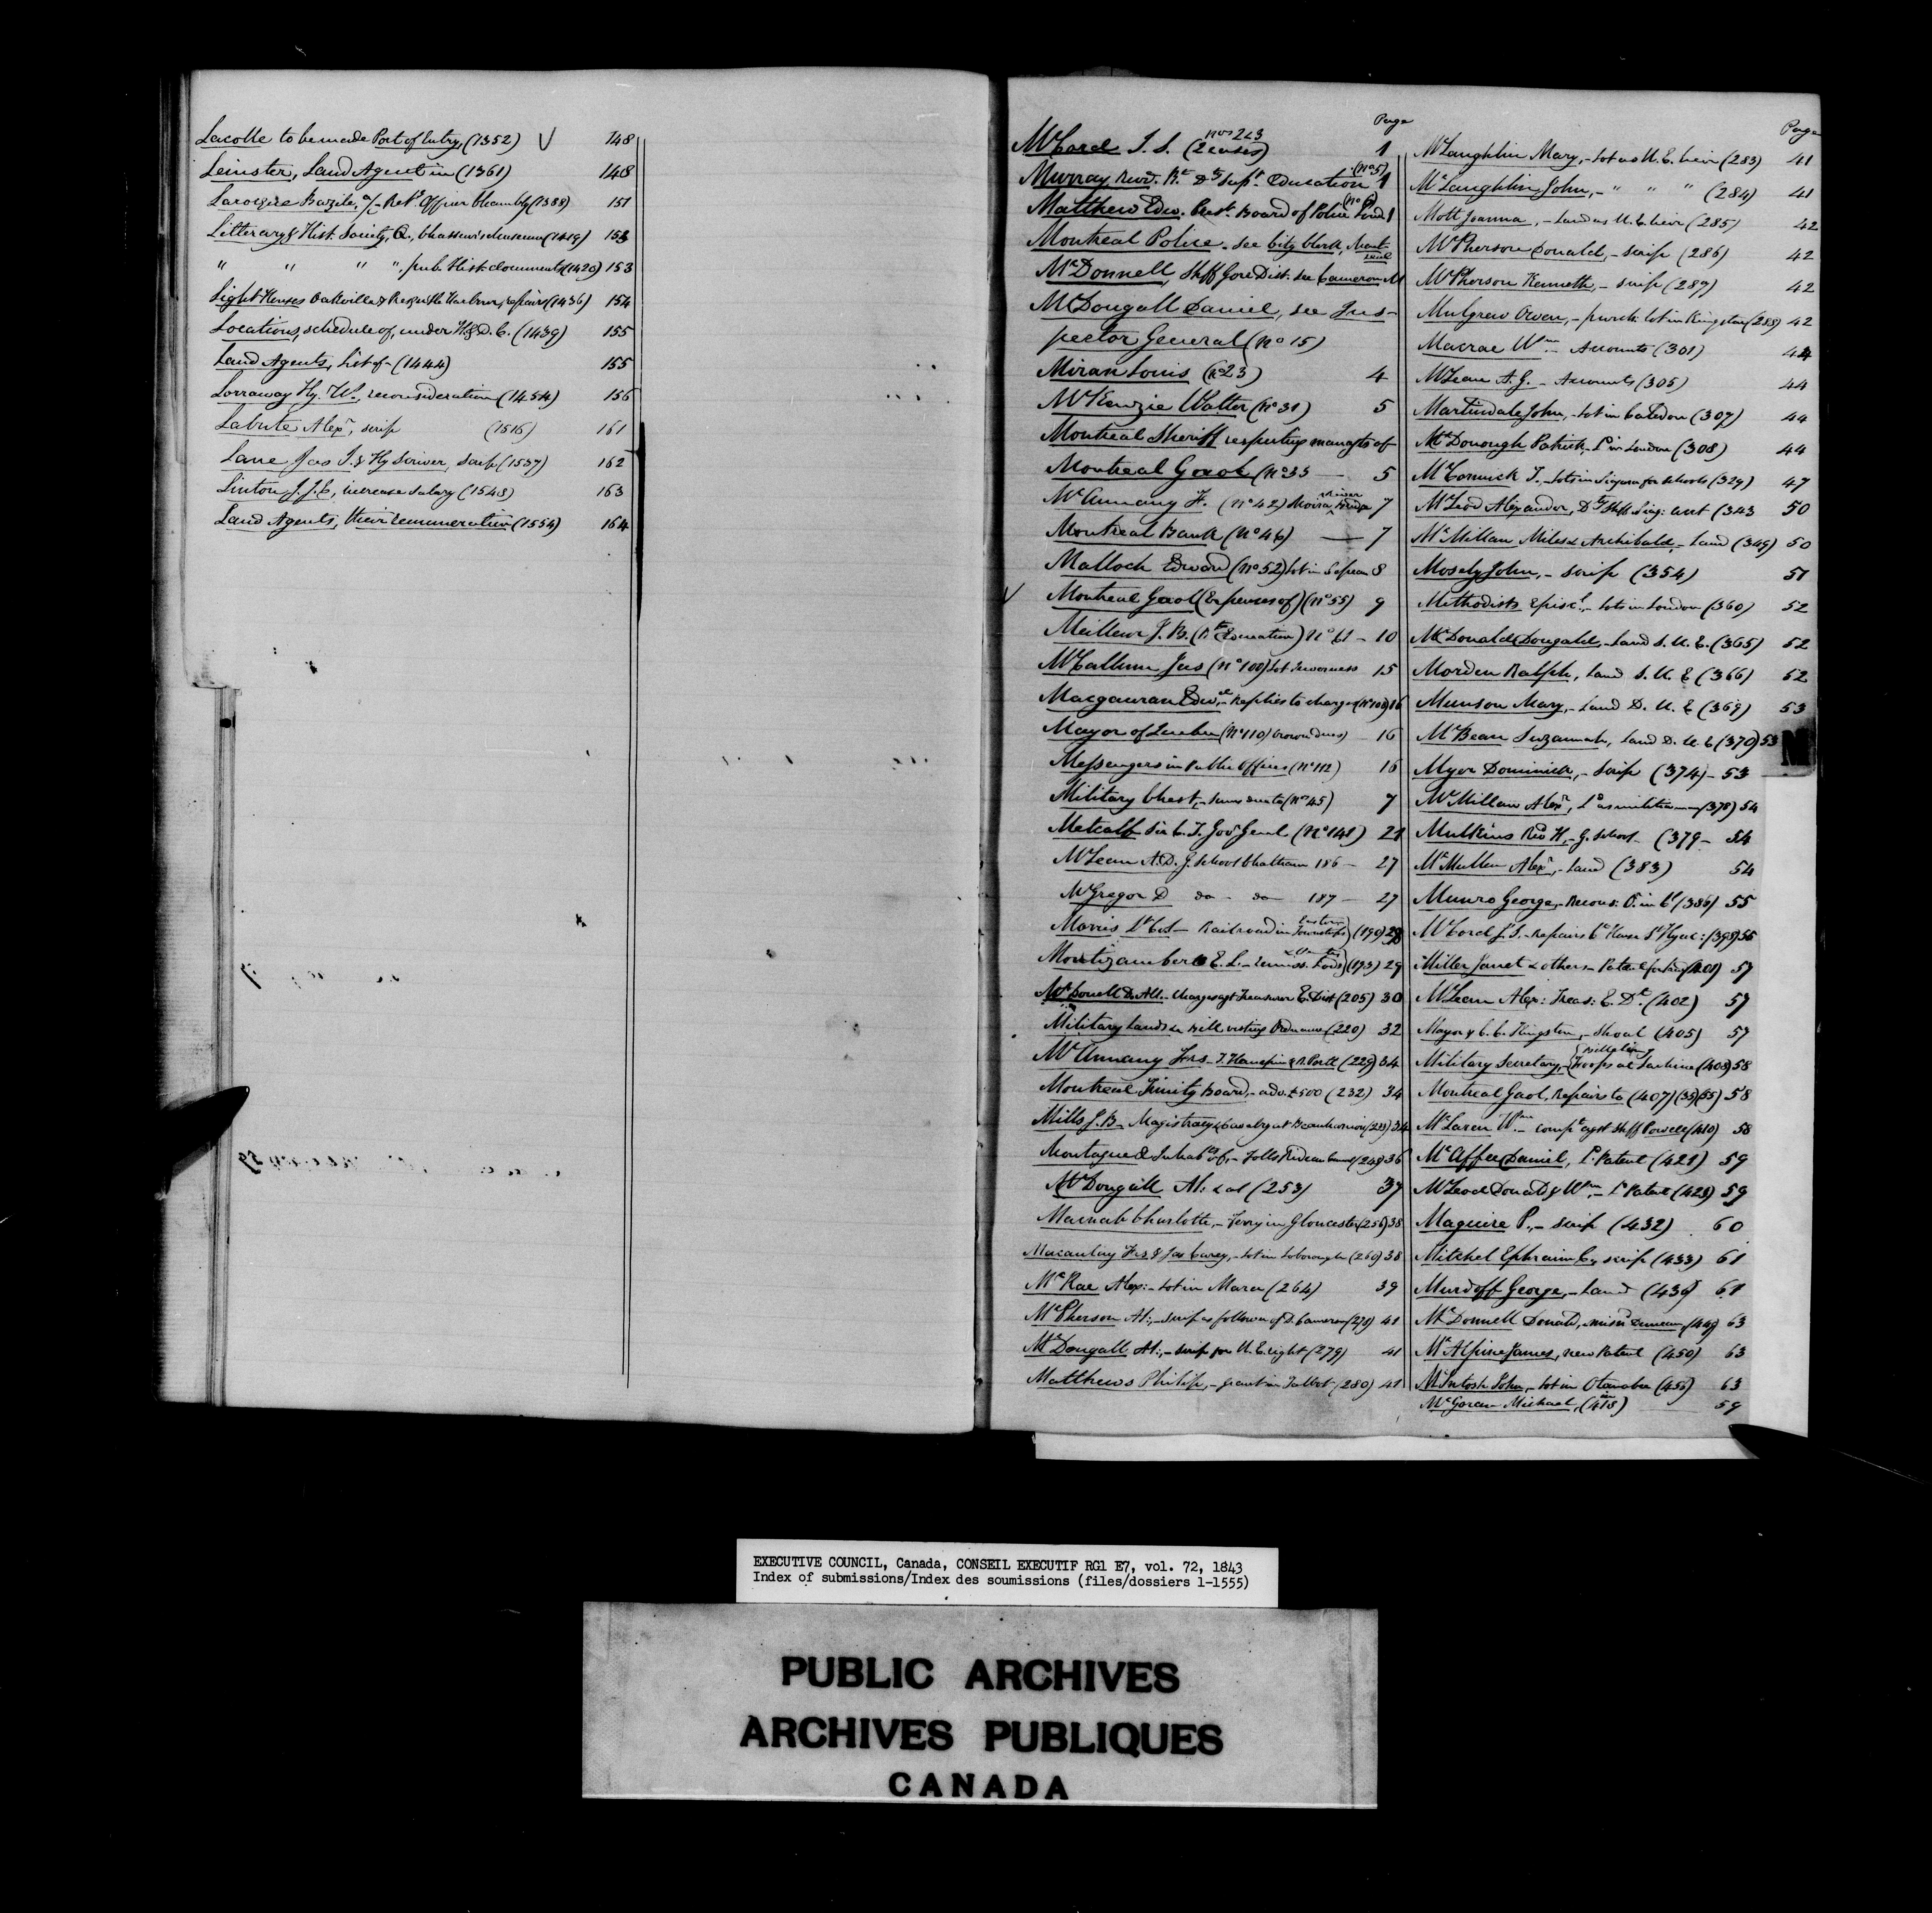 Lacolle to be made Port of Entry, (1352) 148
Leinster, Land Agent in (1361) 148
Larocque Bazile, a/c Ret'g Officer Chambly (1388) 151
Litterary & Hist. Society, Q., Chasseur's Museum (1419) 153
" " " " pub. Hist. documents (1420) 153
Light Houses Oakville & Harbour, repairs (1436) 154
Locations, schedule of, under H.D.C. (1439) 155
Land Agents, List of - (1444) 155
Lorraway Hy. W., reconsideration (1454) 156
Labute Alexr, scrip (1516) 161
Lane Jas S. & Hy Scriver, Scrip (1537) 162
Linton J.J.E, increase salary (1548) 163
Land Agents, their remuneration (1554) 164
Page
McCord J. S. (2 cases) nos 2 & 3 1
Murray Revd. Rt. Dy Supt. Education (No 5) 1
Matthew Edw. Prest. Board of Police (No 6) 1
Montreal Police - see City Clerk, Montreal
McDonnell, Shff Gore Dist. see Cameron
McDougall Daniel, see Ins-
pector General (No 15)
Miran Louis (No 23) 4
McKenzie Walter (No 31) 5
Montreal Sheriff respecting managt of-
Montreal Gaol (No 33 — 5
McAnnany F. (No 42) Moira River Bridge 7
Montreal Bank (No 46) — 7
Malloch Edward (No 52) Lot in Nepean 8
Montreal Gaol (Expenses of) (No 55) 9
Meilleur J. B. (Rt Education) No 61 - 10
McCallum Jas (No 100) Lot Inverness 15
Macgauran Edwd, - Replies to charges (No 108) 16
Mayor of Quebec (No 110) Crown dues) 16
Messengers in Public Offices (No 112) 16
Military Chest, - sums due to (No 45) 7
Metcalf Sir C. T. Govr Genl (No 148) 21
McLean A. D. G. School Chatham 186 - 27
McGregor D do - do - 187 - 27
Morris Lt Col - Railroad in Eastern Townships) (190) 28
Montizambert E. L. - (193) 29
McDonell D. Æ. - Charges agt Treasurer E. Dist (205) 30
Military Lands - Bill vesting Ordnance (220) 32
McAnnany Frs - T. Hanepin & R. Bell (229) 34
Montreal Trinity Board, - adv. £500 (232) 34
Mills J. B. Magistracy & Cavalry at Beauharnois (233) 34
Montague & Inhabts of, - Tolls Rideau Canal (248) 36
McDougall Al: & al (253) 37
Macnab Charlotte, - Ferry in Gloucester (256) 38
Macaulay Frs & Jas Carey, - Lot in Loborough (260) 38
McRae Alex: - Lot in Mara (264) 39
McPherson Al:, - scrip as follower of D. Cameron (278) 41
McDougall Al:, - scrip for U.E. right (279) 41
Matthews Philip, - grant in Talbot (280) 41
Page
McLaughlin Mary, - Lot as U.E. heir (283) 41
McLaughlin John, - " " " (284) 41
Mott Joanna, - Land as U.E. heir (285) 42
McPherson Donald, - scrip (286) 42
McPherson Kenneth, - scrip (287) 42
Mulgrew Owen, - purch: lot in Kingston (288) 42
Macrae Wm - Accounts (301) 44
McLean A. G. - Accounts (305) 44
Martindale John, - Lot in Caledon (307) 44
McDonough Patrick, - Do in London (308) 44
McCormick T., - Lots in Niagara for schools (329) 47
McLeod Alexander, Dy Shff Niag: acct (343 50
McMillan Miles & Archibald, - Land (349) 50
Mosely John, - scrip (354) 51
Methodists Episcl, - Lots in London (360) 52
McDonald Dougald, - Land S.U.E. (365) 52
Morden Ralph, Land S.U.E (366) 52
Munson Mary, - Land D.U.E (369) 53
McBean Suzannah, Land D.U.E (370) 53
Myer Dominick, - Scrip (374) - 53
McMillan Alexr, Do as militiaman (378) 54
Mulkins Revd H, - G. School - (379 - 54
McMullen Alexr, - Land (383) 54
Munro George, - Recons: O. in Cl (386) 55
McCord J. S. - Repairs Ct House St Hyac: (398) 56
Miller Janet & others - Patent for land (401) 57
McLean Alex: Treas: E. Dt. (402) 57
Mayor & C. C. Kingston, - Shoal (405) 57
Military Secretary, - {billeting Troops at Lachine (408) 58
Montreal Gaol, Repairs to (407) (33) (55) 58
McLaren Wm - compt agst Shff Powell (410) 58
McAffee Daniel, Ld Patent (421) 59
McLeod Donald & Wm, - Ld Patent (423) 59
Maguire P., - scrip (432) 60
Mitchel Ephraim C, scrip (433) 61
Murdoff George, - Land (436) 61
McDonnell Donald, misnd Duncan (449) 63
McAlpine James, new Patent (450) 63
McIntosh John, - Lot in Otonabee (456) 63
McGoran Michael, (418) 59
M
EXECUTIVE COUNCIL, Canada, CONSEIL EXECUTIF RG1 E7, vol. 72, 1843
Index of submissions/Index des soumissions (files/dossiers 1-1555)
PUBLIC ARCHIVES
ARCHIVES PUBLIQUES
CANADA